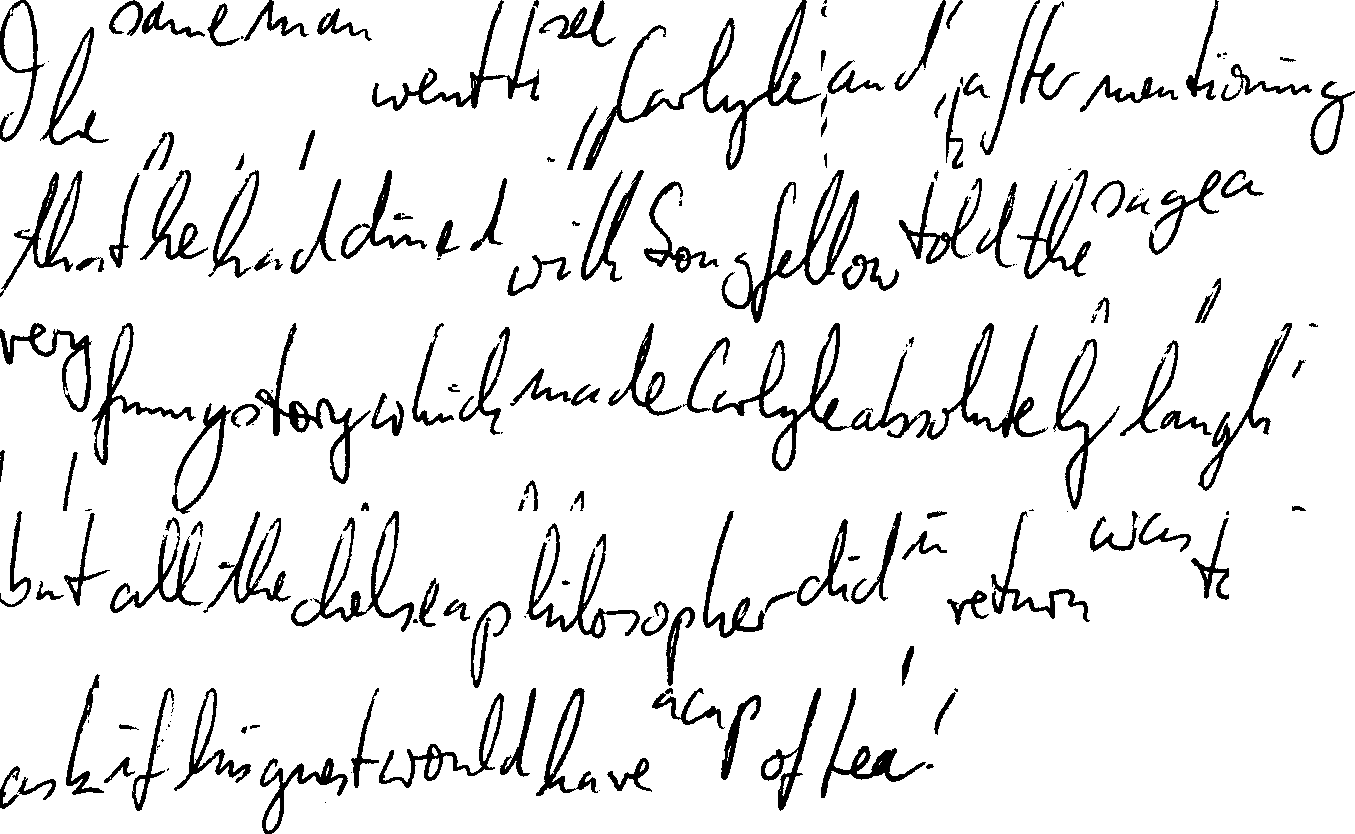 The same man went to see Carlyle and, after mentioning
that he had dined with Longfellow told the sage a
very funny story which made Carlyle absolutely laugh
but all the chelsea philosopher did in return was to
ask if his guest would have a cup of tea!